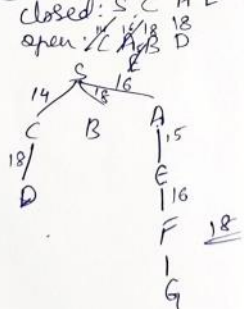 closed: S C A E
18
open: C A B D
E
S
14 18 16
C B A
18 15
D E
16
F 18
G